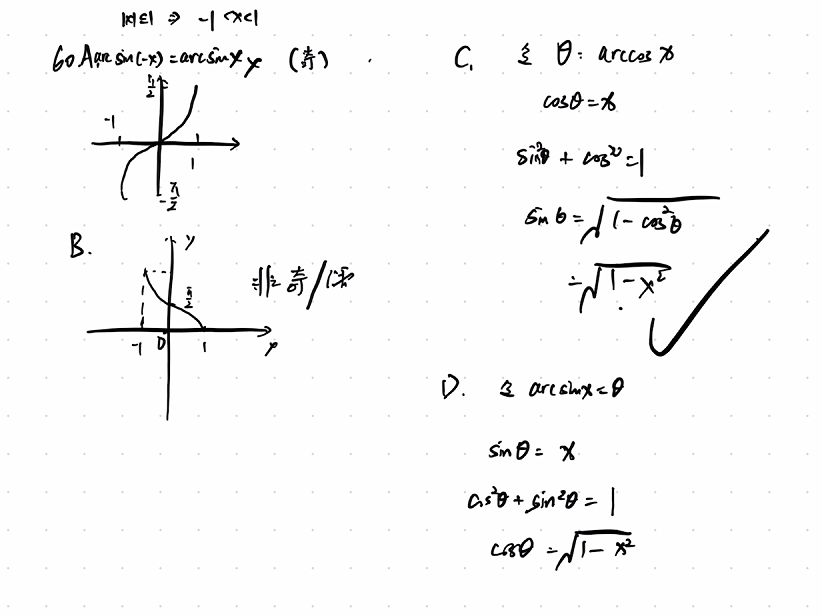 |x|≤1 ⇒ -1<x<1
60 A arcsin(-x)=arcsinx y (奇)
π/2
-1
1
-π/2
B.
y
非奇/偶
π/2
-1 0 1 x
C. 令 θ= arccos x
cosθ = x
sin²θ + cos²θ = 1
sin θ = √(1-cos²θ)
= √(1-x²)
D. 令 arcsinx = θ
sinθ = x
cos²θ + sin²θ = 1
cosθ = √(1-x²)